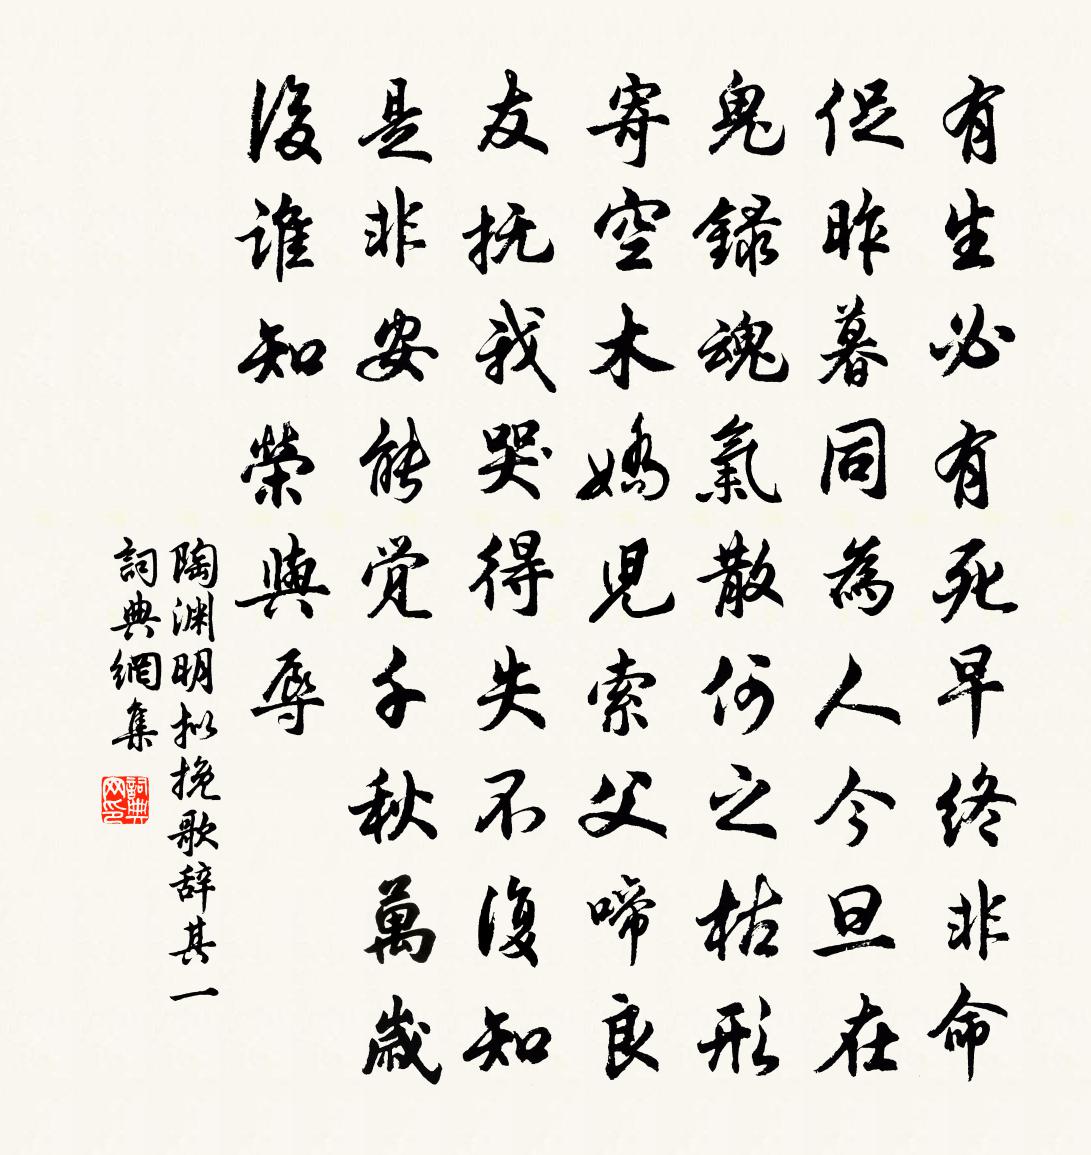 有生必有死早終非命
促昨暮同為人今旦在
鬼録魂氣散何之枯形
寄空木嬌児索父啼良
友撫我哭得失不復知
是非安能覚千秋萬歳
後誰知榮與辱
陶渊明拟挽歌辞其一
詞典網集
詞典网印